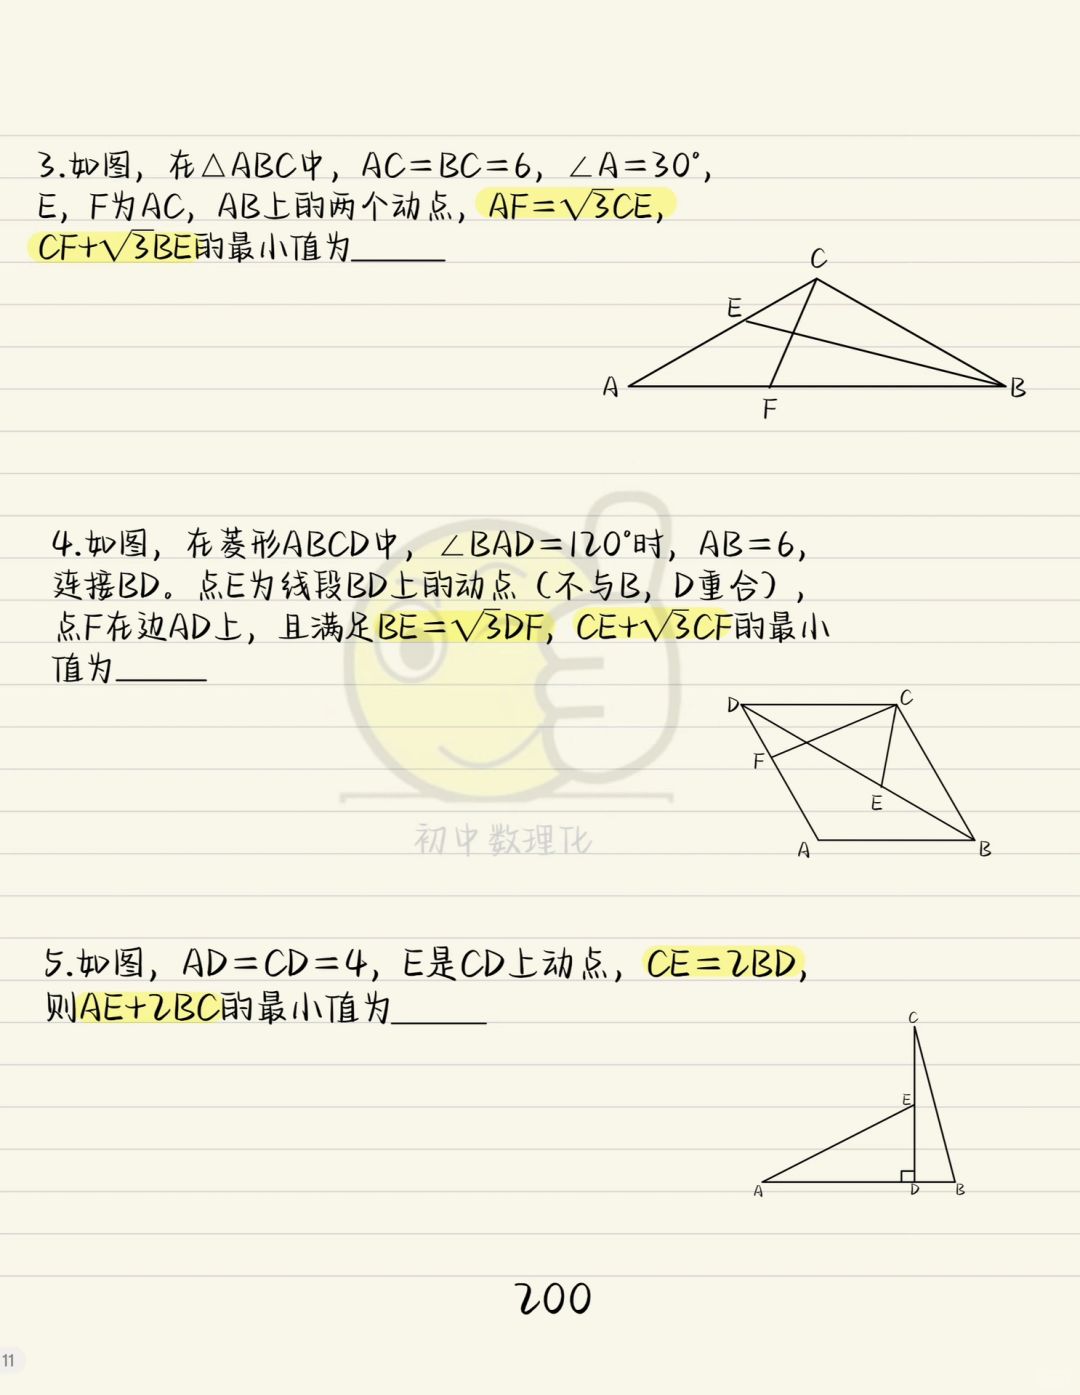 3.如图，在△ABC中，AC=BC=6，∠A=30°，
E，F为AC，AB上的两个动点，AF=√3CE，
CF+√3BE的最小值为______
C
E
A
F
B
4.如图，在菱形ABCD中，∠BAD=120°时，AB=6，
连接BD。点E为线段BD上的动点（不与B，D重合），
点F在边AD上，且满足BE=√3DF，CE+√3CF的最小
值为______
D
C
F
E
A
B
初中数理化
5.如图，AD=CD=4，E是CD上动点，CE=2BD，
则AE+2BC的最小值为______
C
E
A
D
B
200
11